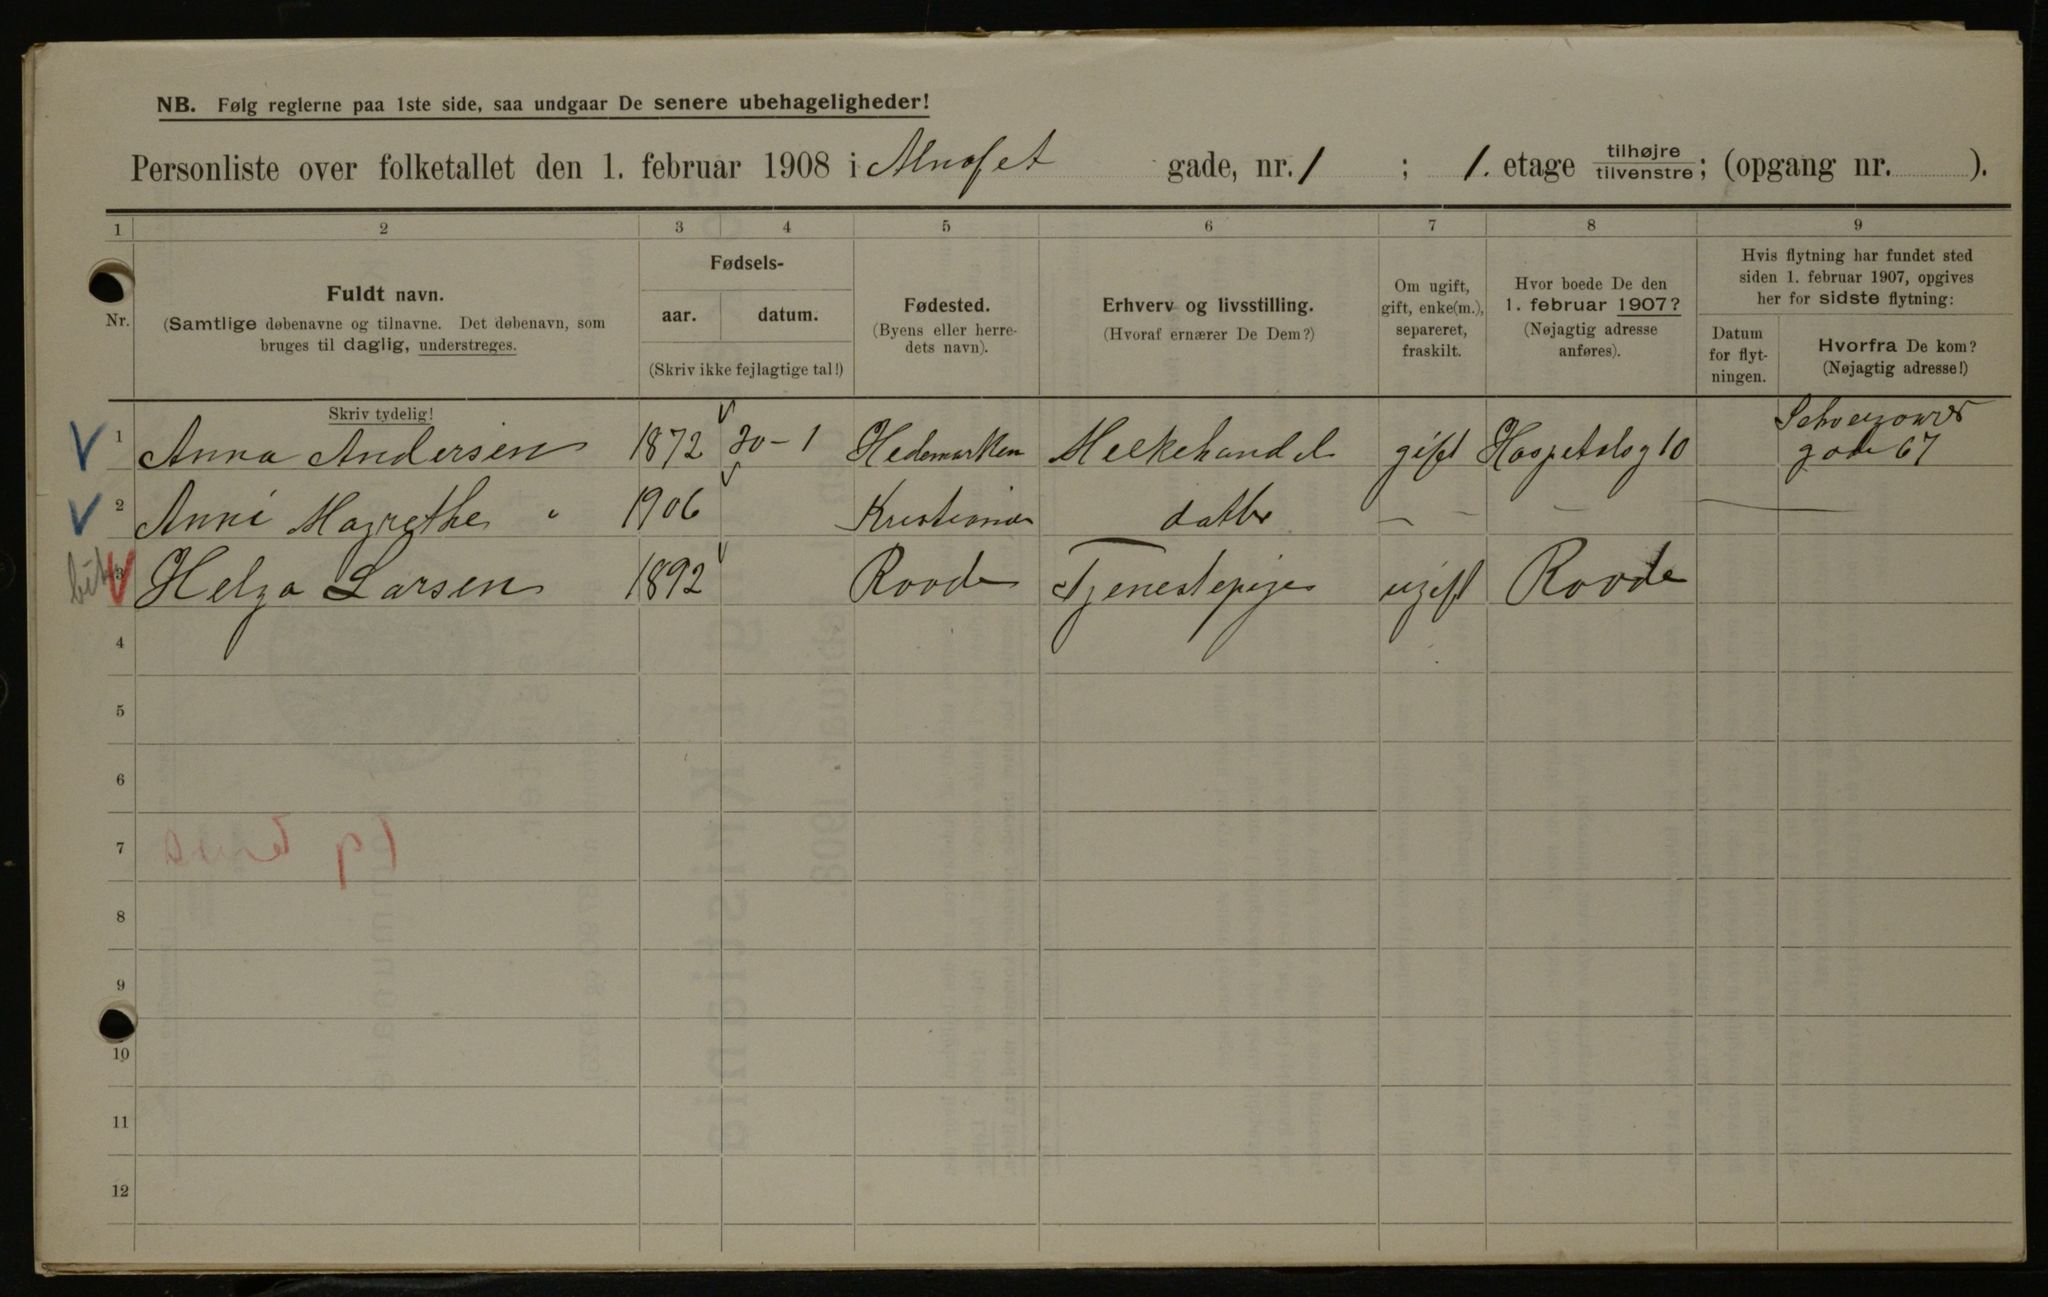 NB. Følg reglerne paa 1ste side, saa undgaar De senere ubehageligheder!
Personliste over folketallet den 1. februar 1908 i gade, nr. 1 ; 1. etage tilhøjre tilvenstre; (opgang nr. ).
1 2 3 4 5 6 7 8 9
Nr.
Fuldt navn.
(Samtlige døbenavne og tilnavne. Det døbenavn, som
bruges til daglig, understreges.
Skriv tydelig!
Fødsels-
aar. datum.
(Skriv ikke fejlagtige tal!)
Fødested.
(Byens eller herre-
dets navn).
Erhverv og livsstilling.
(Hvoraf ernærer De Dem?)
Om ugift,
gift, enke(m.),
separeret,
fraskilt.
Hvor boede De den
1. februar 1907?
(Nøjagtig adresse
anføres).
Hvis flytning har fundet sted
siden 1. februar 1907, opgives
her for sidste flytning:
Datum
for flyt-
ningen.
Hvorfra De kom?
(Nøjagtig adresse!)
1 Anna Andersen 1872 30-1 Hedemarken Melkehandel gift Hospetalsg 10 gade 67
2 Anni Magrethe " 1906 Kristiania datter - - - —
3 Helga Larsen 1892 Roode Tjenestepige ugift Roode
4
5
6
7
8
9
10
11
12